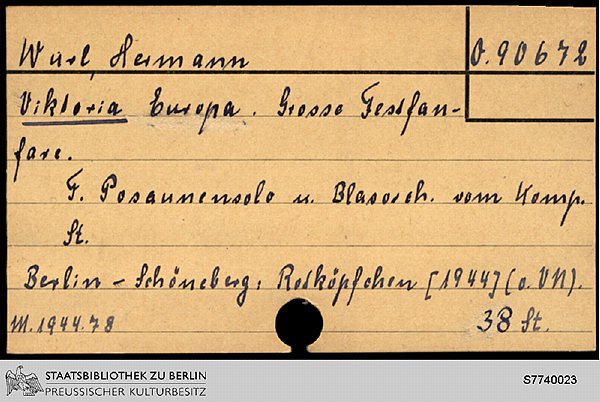 Wurl, Hermann
O. 90672
Viktoria Europa. Grosse Festfan-
fare.
F. Posaunensolo u. Blasorch. vom Komp.
St.
Berlin-Schöneberg: Rotköpfchen [1944] (o. VN).
M. 1944.78
38 St.
STAATSBIBLIOTHEK ZU BERLIN
PREUSSISCHER KULTURBESITZ
S7740023